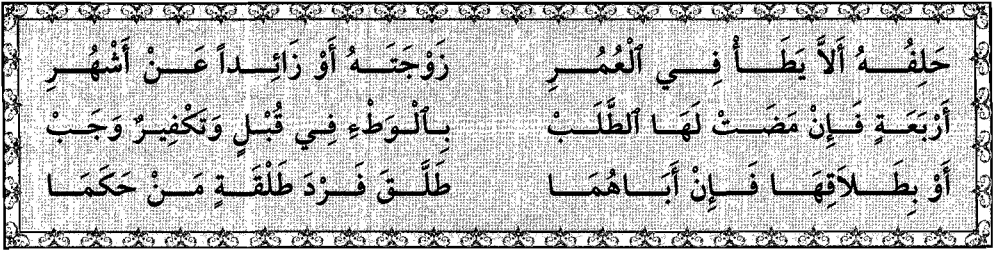 حَلِفُهُ أَلاَّ يَطَأْ فِي ٱلْعُمُرِ زَوْجَتَهُ أَوْ زَائِداً عَنْ أَشْهُرِ
أَرْبَعَةٍ فَإِنْ مَضَتْ لَهَا ٱلطَّلَبْ بِٱلْوَطْءِ فِي قُبْلٍ وَتَكْفِيرٌ وَجَبْ
أَوْ بِطَلاَقِهَا فَإِنْ أَبَاهُمَا طَلَّقَ فَرْدَ طَلْقَةٍ مَنْ حَكَمَا